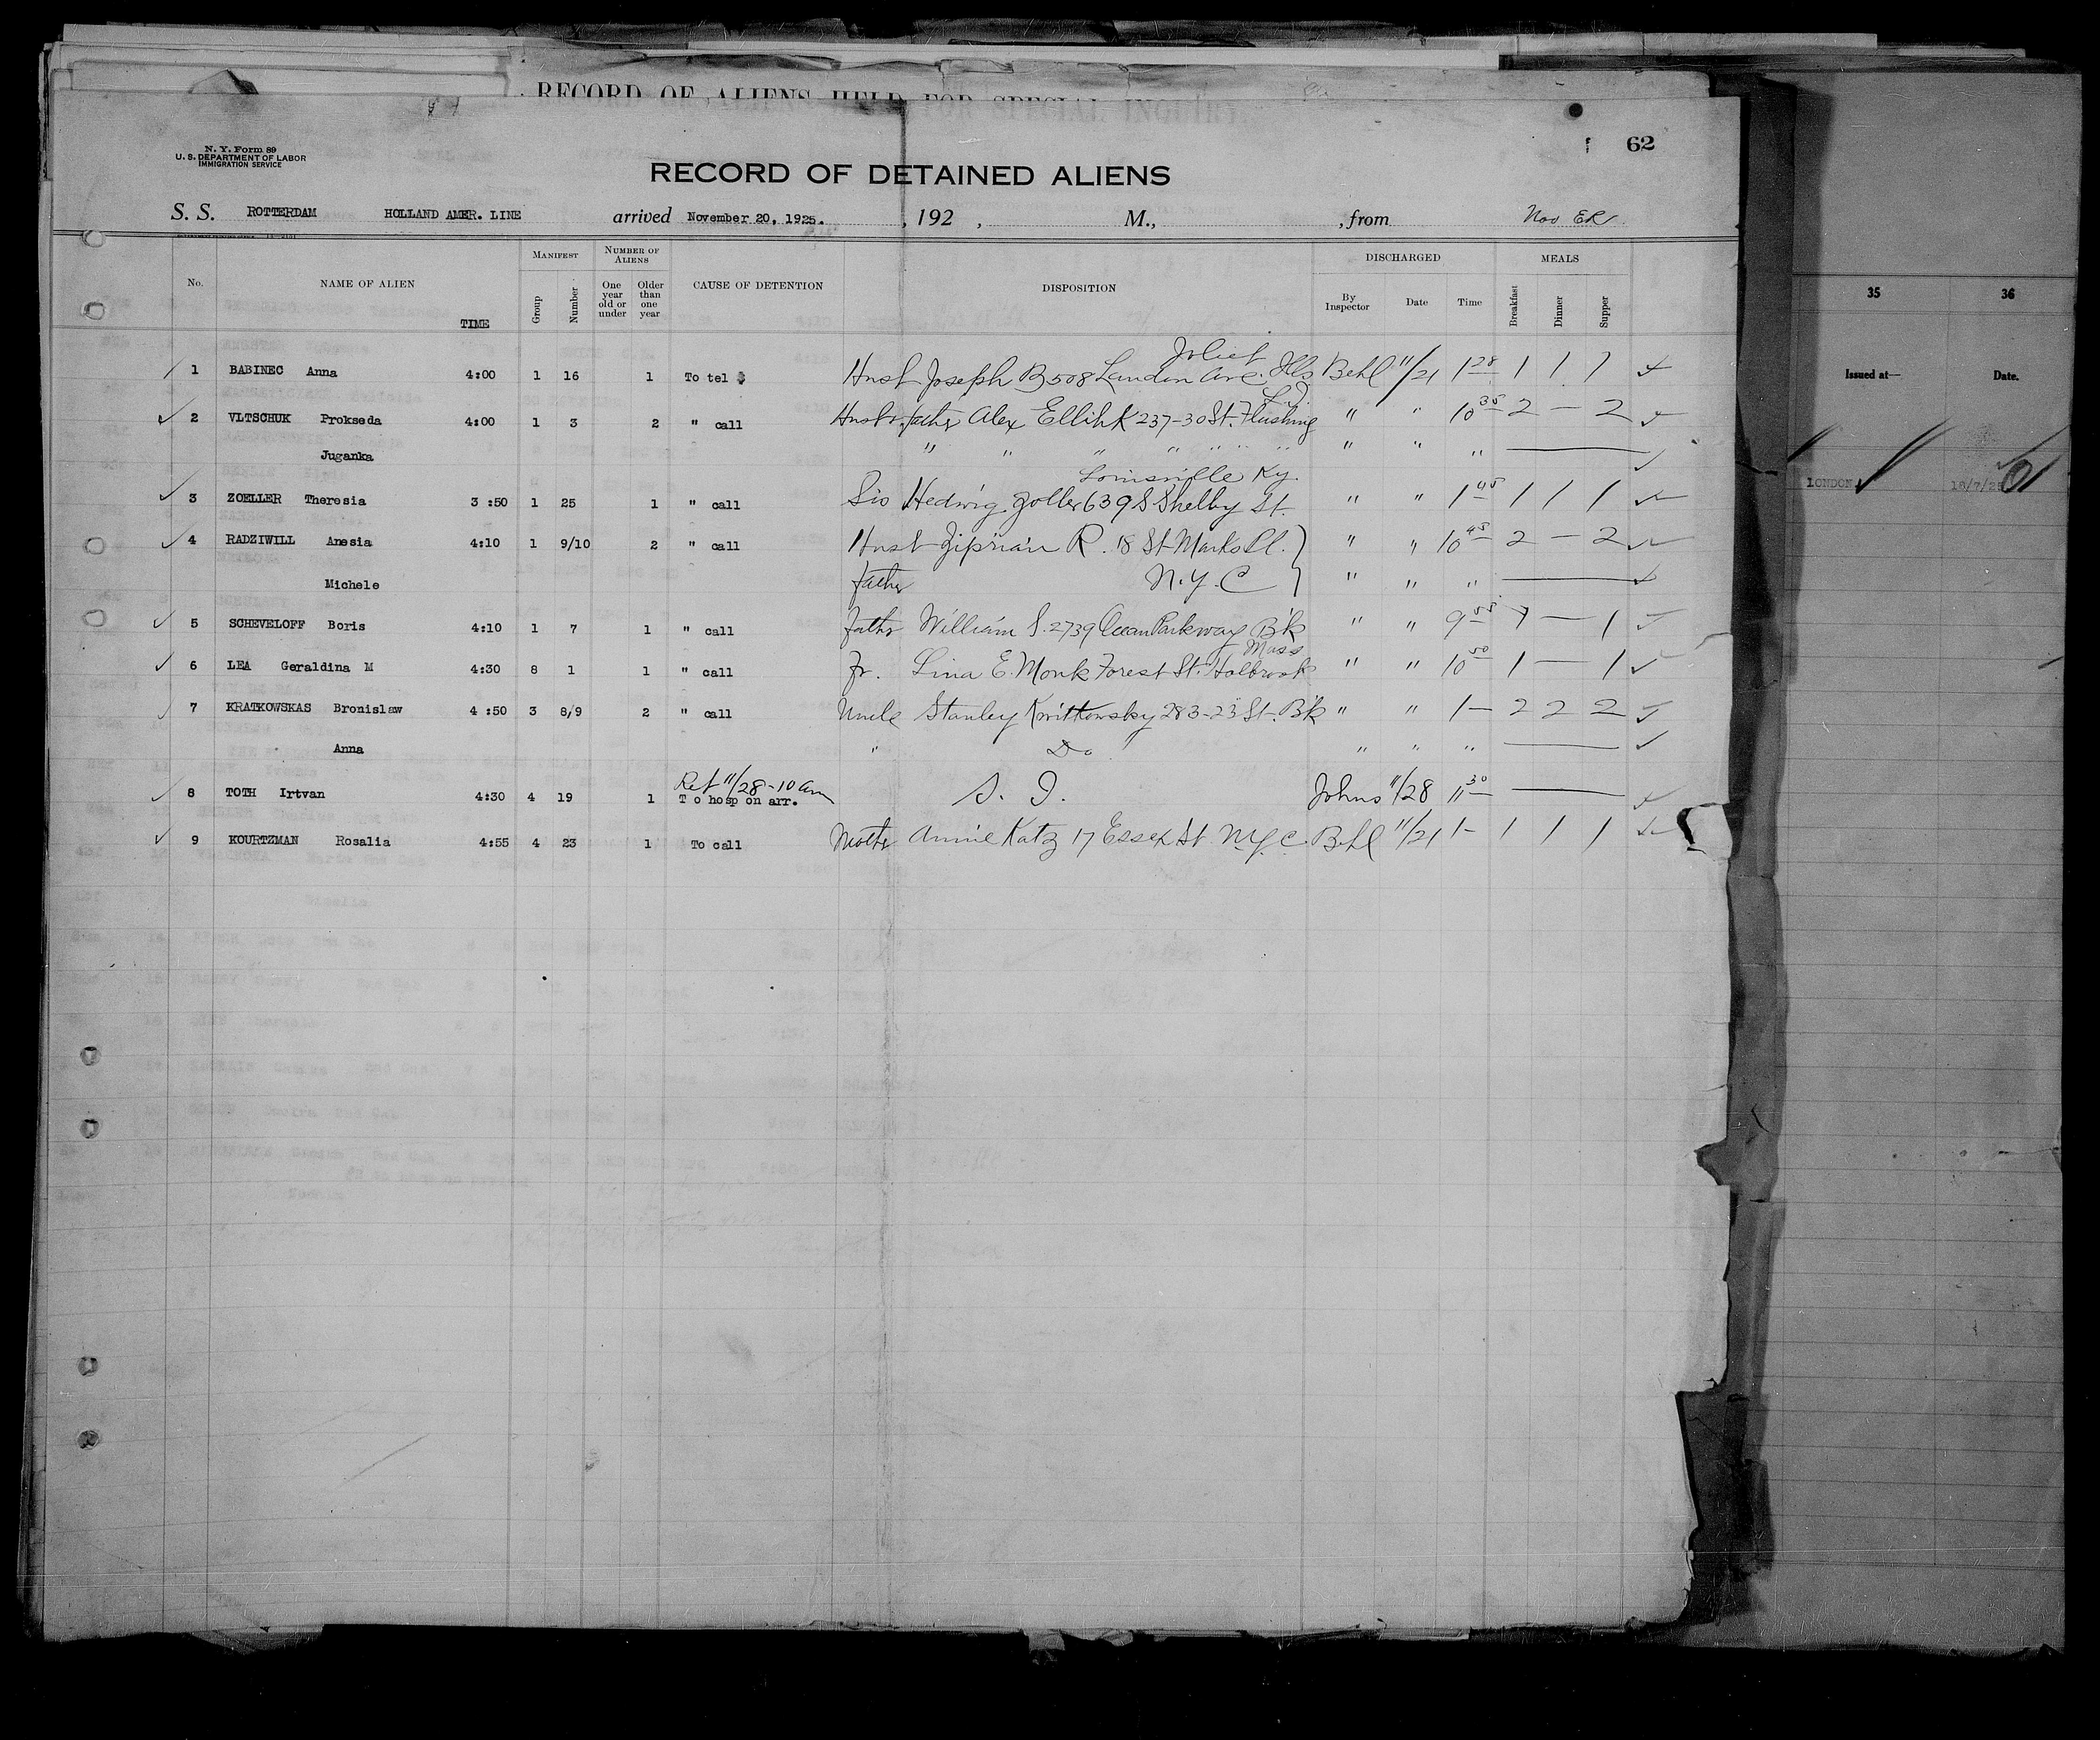 RECORD OF ALIENS HELD FOR SPECIAL INQUIRY
62
N. Y. Form 89
U. S. DEPARTMENT OF LABOR
IMMIGRATION SERVICE
RECORD OF DETAINED ALIENS
S. S. ROTTERDAM HOLLAND AMER. LINE arrived November 20, 1925. , 192 , M., , from Nov ER
No. NAME OF ALIEN TIME MANIFEST Group Number NUMBER OF ALIENS One year old or under Older than one year CAUSE OF DETENTION DISPOSITION DISCHARGED By Inspector Date Time MEALS Breakfast Dinner Supper
Joliet
1 BABINEC Anna 4:00 1 16 1 To tel $ Husb Joseph B 508 Landon Ave. Ills Behl 11/21 1 28 1 1 1
L.I.
2 VLTSCHUK Prokseda 4:00 1 3 2 " call Husb + father Alex 237-30 St. Flushing " " 10 35 2 — 2
Juganka " " " " " " " " " " —
Louisville Ky.
3 ZOELLER Theresia 3 :50 1 25 1 " call Sis Hedwig Zoller 639 S Shelby St. " " 1 45 1 1 1
4 RADZIWILL Anesia 4:10 1 9/10 2 " call Husb Ziprian R. 18 St Marks Pl. } " " 10 45 2 — 2
Michele father N.Y.C } " " " —
5 SCHEVELOFF Boris 4:10 1 7 1 " call father William S. 2739 Ocean Parkway Bk " " 9 55 1 — 1
Mass
6 LEA Geraldina M 4:30 8 1 1 " call Fr. Lina E. Monk Forest St. Holbrook " " 10 50 1 — 1
7 KRATKOWSKAS Bronislaw 4 :50 3 8/9 2 " call Uncle Stanley Kwitkowsky 283-23 St. Bk " " 1— 2 2 2
Anna " Do " " " —
Ret 11/28-10 am
8 TOTH Irtvan 4:30 4 19 1 T o hosp on arr. S. I. Johns 11/28 11 30 —
9 KOURTZMAN Rosalia 4:55 4 23 1 To call Mother Annie Katz 17 Essex St N.Y.C. Behl 11/21 1— 1 1 1
35 36
Issued at— Date.
LONDON 18/7/25